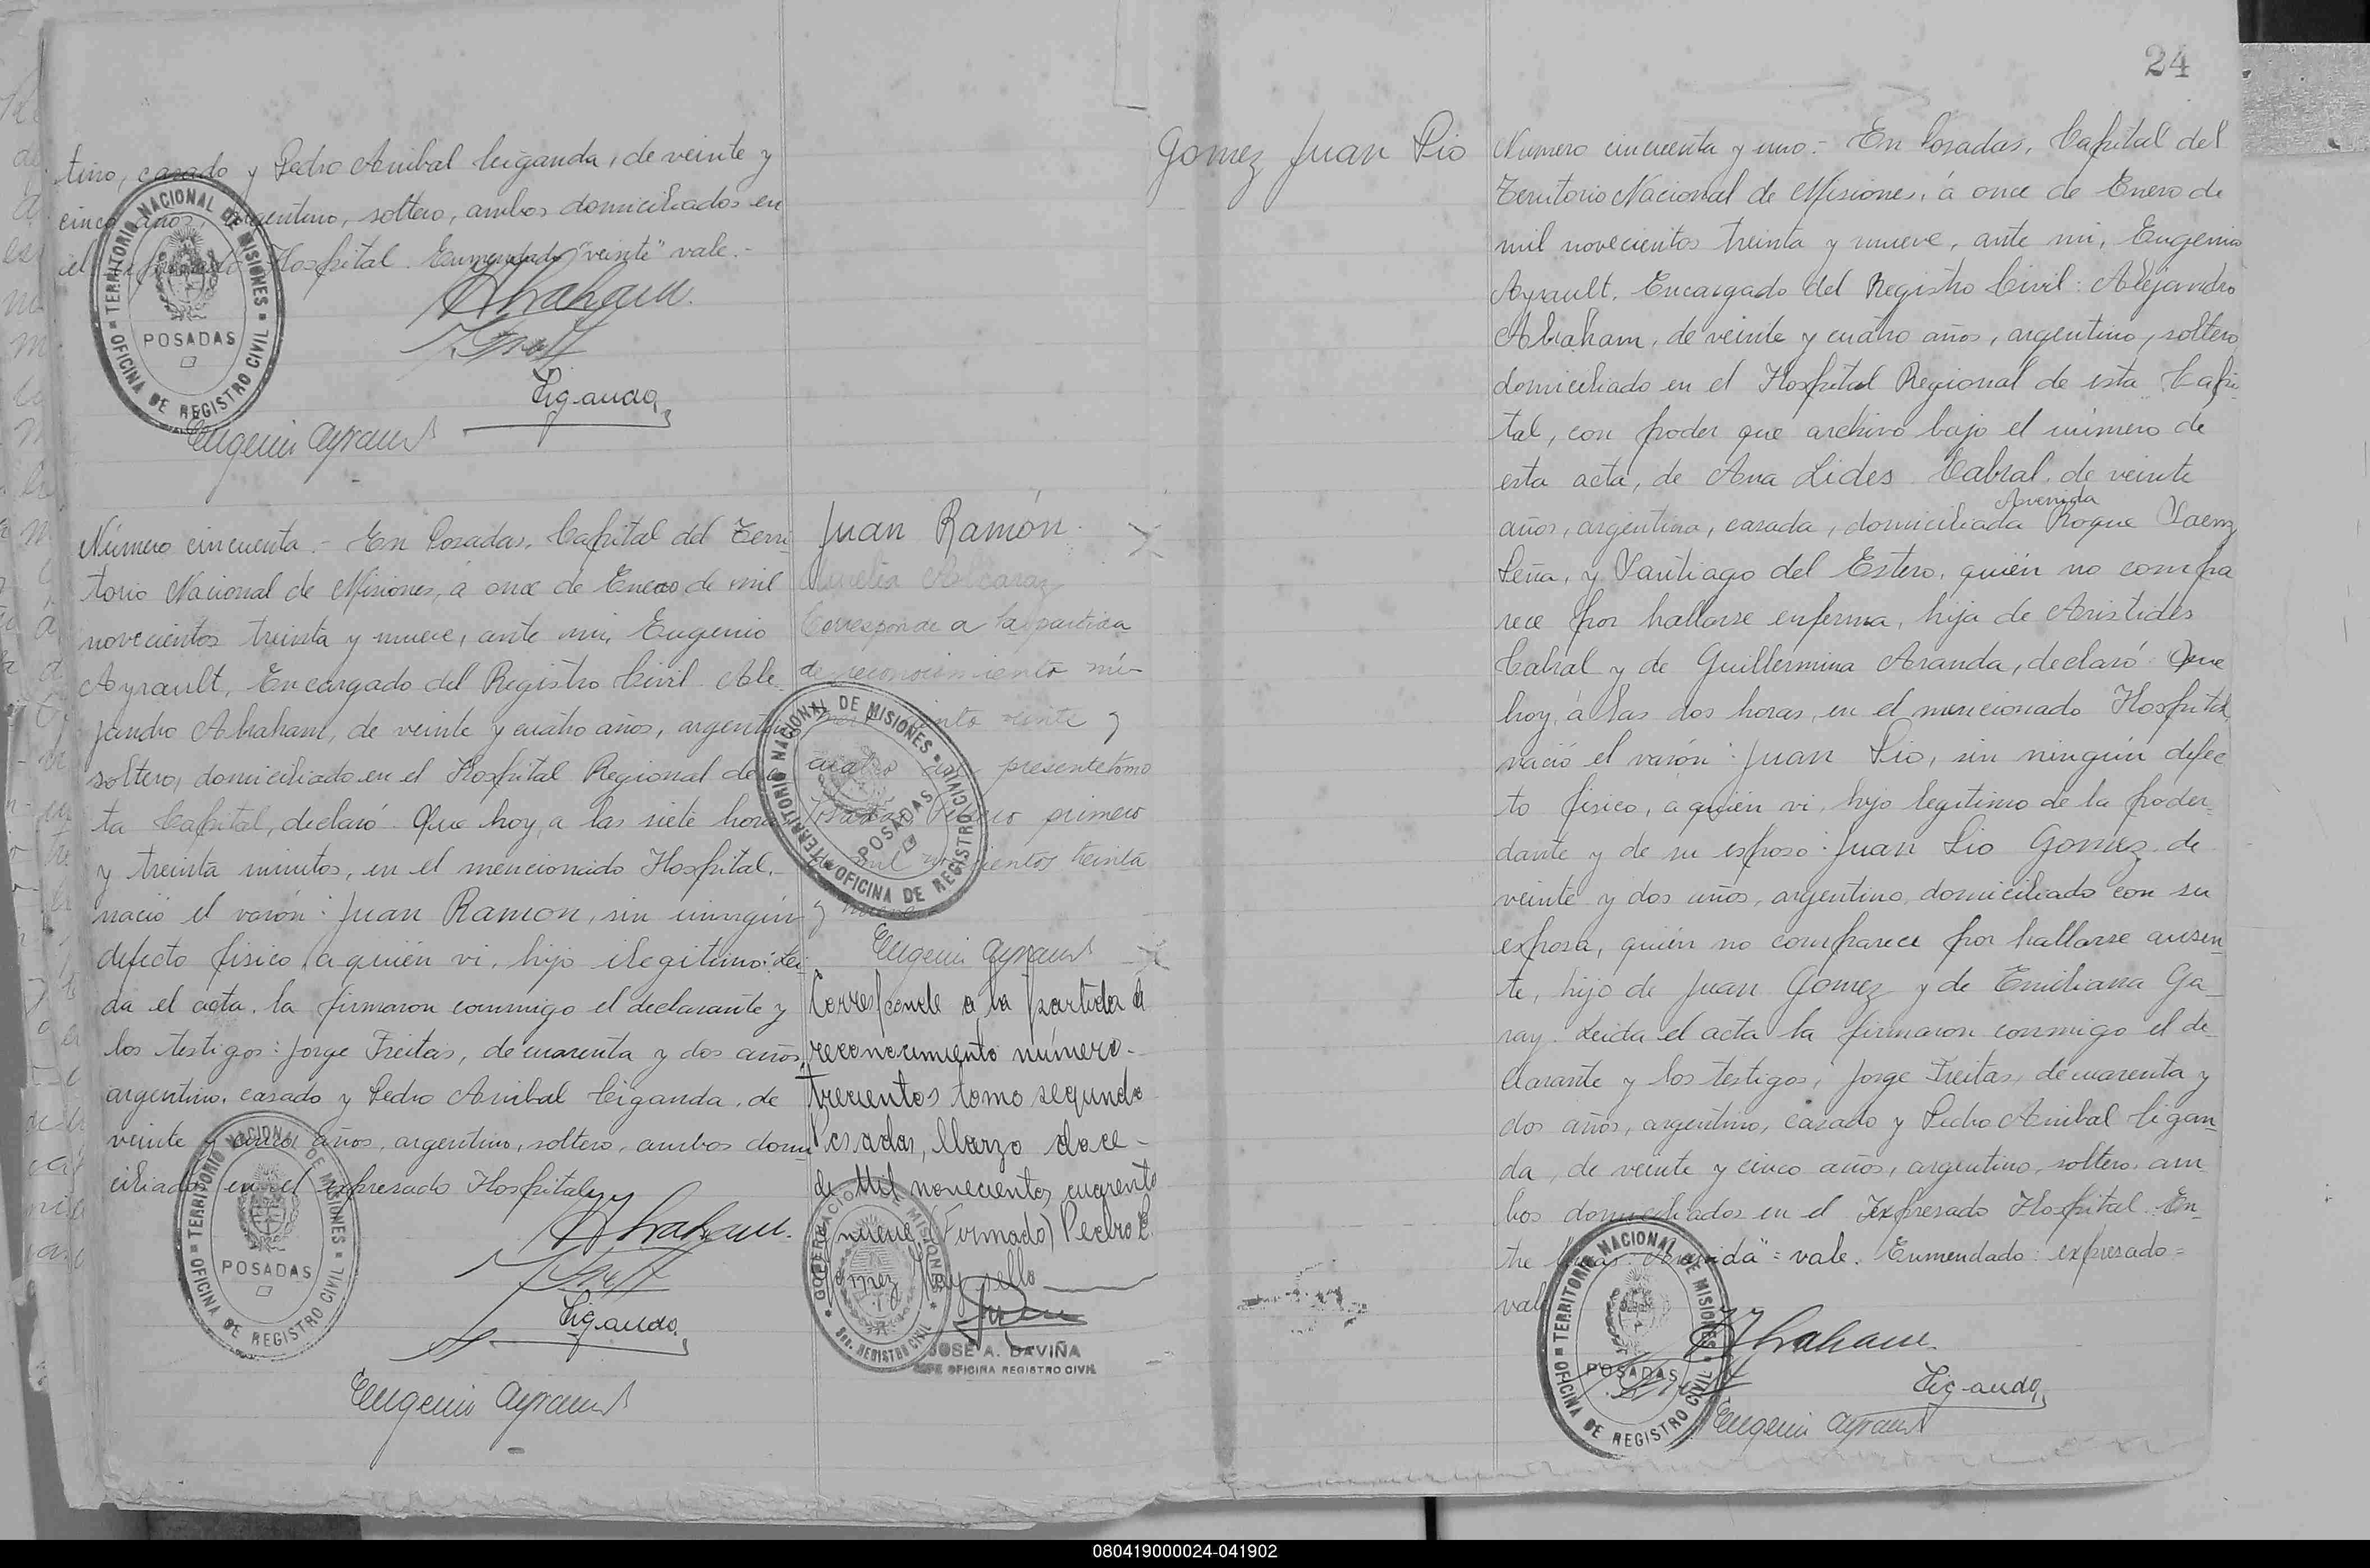 tino, casado y Pedro Anibal Ciganda, de veinte y
cinco años, argentino, soltero, ambos domiciliados en
el expresado Hospital. Enmendado "veinte" vale.-
Abraham
TERRITORIO NACIONAL DE MISIONES
POSADAS
OFICINA DE REGISTRO CIVIL
Ciganda
Eugenio Ayrault
Número cincuenta.- En Posadas, Capital del Terri-
torio Nacional de Misiones, á once de Enero de mil
novecientos treinta y nueve, ante mi, Eugenio
Ayrault, Encargado del Registro Civil. Ale-
jandro Abraham, de veinte y cuatro años, argentino
soltero, domiciliado en el Hospital Regional de es
ta Capital, declaró: Que hoy, a las siete horas
y treinta minutos, en el mencionado Hospital,
nació el varón: Juan Ramon, sin ningún
defecto fisico, a quién vi, hijo ilegitimo: Lei-
da el acta, la firmaron conmigo el declarante y
los testigos: Jorge Freitas, de cuarenta y dos años,
argentino, casado y Pedro Anibal Ciganda, de
veinte y cinco años, argentino, soltero, ambos domi
ciliados en el expresado Hospital
Abraham
TERRITORIO NACIONAL DE MISIONES
POSADAS
OFICINA DE REGISTRO CIVIL
Ciganda
Eugenio Ayrault
Juan Ramón.
Alcaraz
Corresponde a la partida
de reconocimiento nú-
mero ciento veinte y
cuatro del presente tomo
Posadas, primero
de mil novecientos treinta
y nueve
TERRITORIO NACIONAL DE MISIONES
POSADAS
OFICINA DE REGISTRO CIVIL
Eugenio Ayrault
Corresponde a la partida de
reconocimiento número-
trecientos tomo segundo
Posadas, Marzo doce-
de Mil novecientos cuarenta
y nueve (Firmado) Pedro E.
Gomez Hay sello
GOBERNACION DE MISIONES
REGISTRO CIVIL
JOSE A. DAVIÑA
JEFE OFICINA REGISTRO CIVIL
24
Gomez Juan Pio
Número cincuenta y uno.- En Posadas, Capital del
Territorio Nacional de Misiones, á once de Enero de
mil novecientos treinta y nueve, ante mi, Eugenio
Ayrault, Encargado del Registro Civil: Alejandro
Abraham, de veinte y cuatro años, argentino, soltero
domiciliado en el Hospital Regional de esta Capi-
tal, con poder que archivo bajo el número de
esta acta, de Ana Lides Cabral, de veinte
Avenida
años, argentina, casada, domiciliada Roque Saenz
Peña, y Santiago del Estero, quién no compa
rece por hallarse enferma, hija de Aristides
Cabral y de Guillermina Aranda, declaró: Que
hoy, á las dos horas, en el mencionado Hospital,
nació el varón: Juan Pio, sin ningún defec
to fisico, a quién vi, hijo legitimo de la poder-
dante y de su esposo: Juan Pio Gomez, de
veinte y dos años, argentino, domiciliado con su
esposa, quién no comparece por hallarse ausen-
te, hijo de Juan Gomez y de Emiliana Ga-
ray. Leida el acta la firmaron conmigo el de-
clarante y los testigos, Jorge Freitas, de cuarenta y
dos años, argentino, casado y Pedro Anibal Cigan-
da, de veinte y cinco años, argentino, soltero, am-
bos domiciliados en el Expresado Hospital. En-
tre lineas "Avenida" = vale. Enmendado: expresado =
vale
TERRITORIO NACIONAL DE MISIONES
POSADAS
OFICINA DE REGISTRO CIVIL
Abraham
Ciganda
Eugenio Ayrault
080419000024-041902